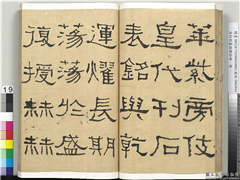 華紫旁伎
皇代刊石
表銘與乾
運燿長期
蕩蕩於盛
復授赫赫
19